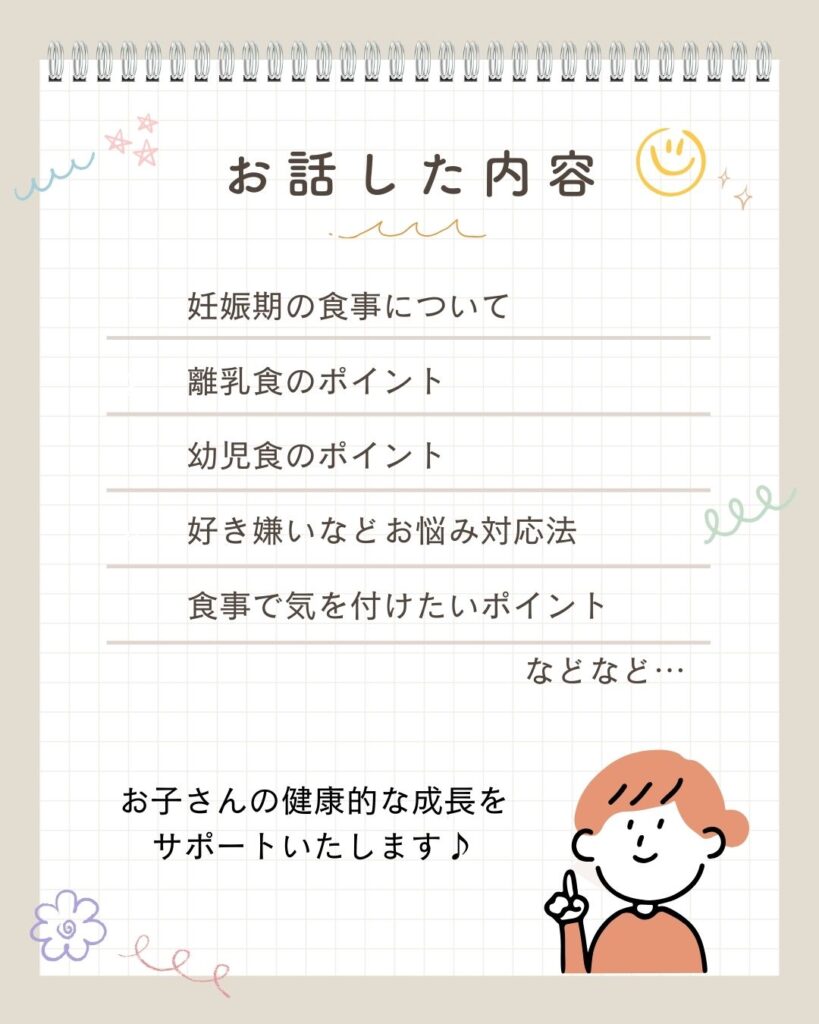 お話した内容
妊娠期の食事について
離乳食のポイント
幼児食のポイント
好き嫌いなどお悩み対応法
食事で気を付けたいポイント
などなど…
お子さんの健康的な成長を
サポートいたします♪